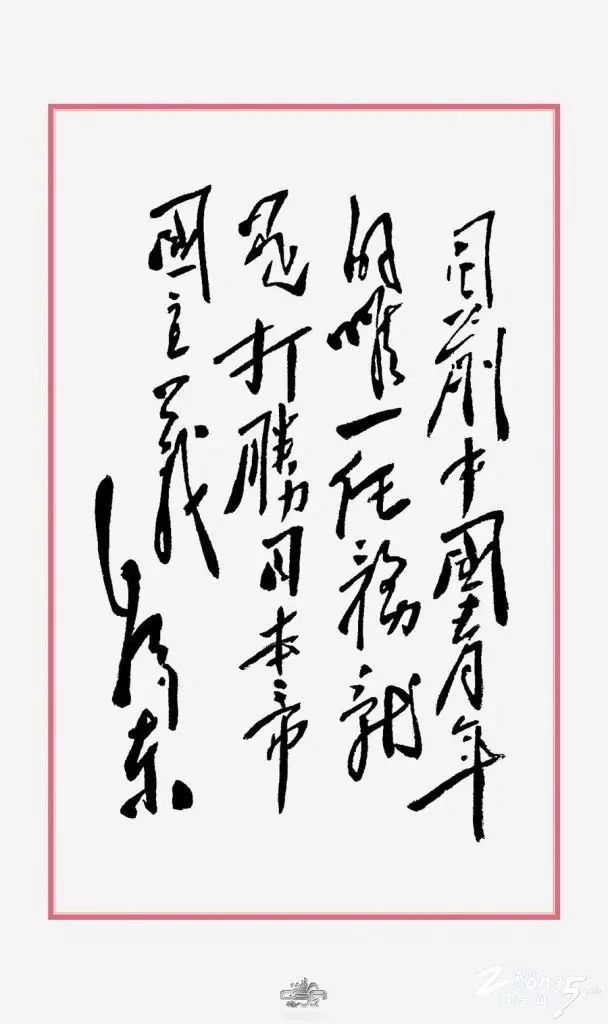 目前中國青年
的唯一任務就
是打勝日本帝
國主義
毛澤東
Zhong5